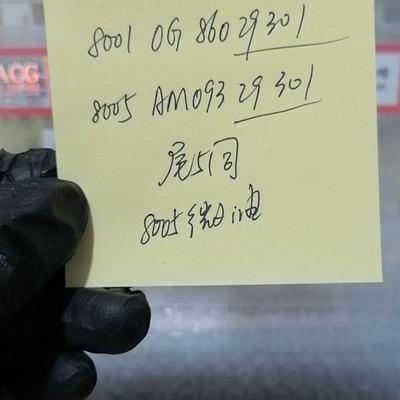 8001 OG 860 29 301
8005 AM093 29 301
尾5同
8005 微油
ACG